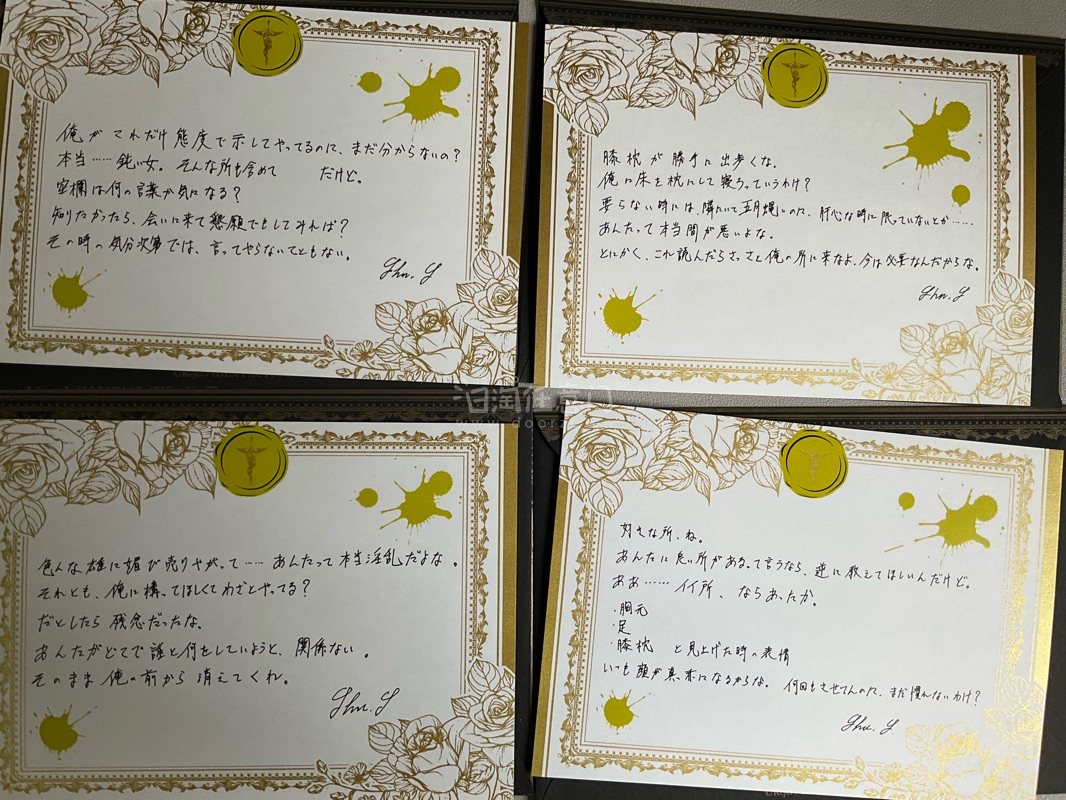 俺がこれだけ態度で示してやってるのに、まだ分からないの?
本当……鈍い女。そんな所も含めて　　　だけど。
空欄は何の言葉か気になる?
知りたかったら、会いに来て懇願でもしてみれば?
その時の気分次第では、言ってやらないこともない。
Shu. S
膝枕が勝手に出歩くな。
俺に床を枕にして寝ろっていうわけ?
要らない時には、隣にいて五月蝿いのに、肝心な時に限っていないとか……
あんたって本当間が悪いよな。
とにかく、これ読んだらさっさと俺の所に来なよ、今は必要なんだからな。
Shu. S
色んな雄に媚び売りやがって……あんたって本当淫乱だよな。
それとも、俺に構ってほしくてわざとやってる?
だとしたら残念だったな。
あんたがどこで誰と何をしていようと、関係ない。
そのまま俺の前から消えてくれ。
Shu. S
好きな所、ね。
あんたに良い所があるって言うなら、逆に教えてほしいんだけど。
ああ……イイ所、ならあったか。
・胸元
・足
・膝枕　と見上げた時の表情
いつも顔が真っ赤になるからな。何回もさせてんのに、まだ慣れないわけ?
Shu. S